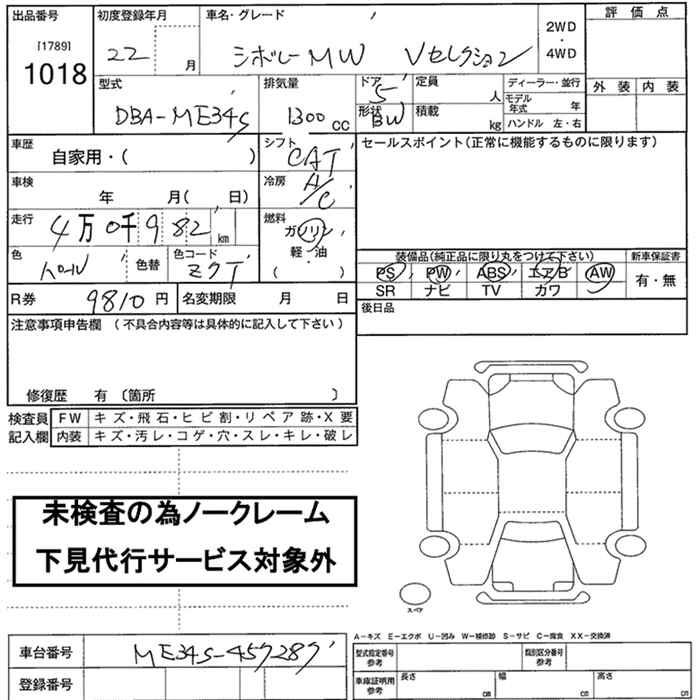 出品番号 初度登録年月 車名・グレード 2WD・4WD 評価点
[1789]
1018 22 月 シボレーMW Vセレクション
型式 排気量 ドア 5 定員 人 ディーラー・並行 外装 内装
DBA-ME34S 1300 CC 形状 BW 積載 kg モデル年式 年
ハンドル 左・右
車歴 シフト セールスポイント(正常に機能するものに限ります)
自家用・( ) CAT
車検 冷房
年 月( 日) A/C
走行 4万0千982km 燃料
ガソリン
軽・油
( )
色 パール 色替 色コード 装備品(純正品に限り丸をつけて下さい) 新車保証書
PS PW ABS エアB AW 有・無
SR ナビ TV カワ
R券 9810円 名変期限 月 日 後日品
注意事項申告欄 (不具合内容等は具体的に記入して下さい)
修復歴 有 〔箇所 〕
検査員 FW キズ・飛石・ヒビ割・リペア跡・X要
記入欄 内装 キズ・汚レ・コゲ・穴・スレ・キレ・破レ
未検査の為ノークレーム
下見代行サービス対象外
スペア
A-キズ E-エクボ U-凹み W-補修跡 S-サビ C-腐食 XX-交換済
車台番号 ME34S-457287 型式指定番号 参考 類別区分番号 参考
登録番号 車庫証明用 参考 長さ cm 幅 cm 高さ cm